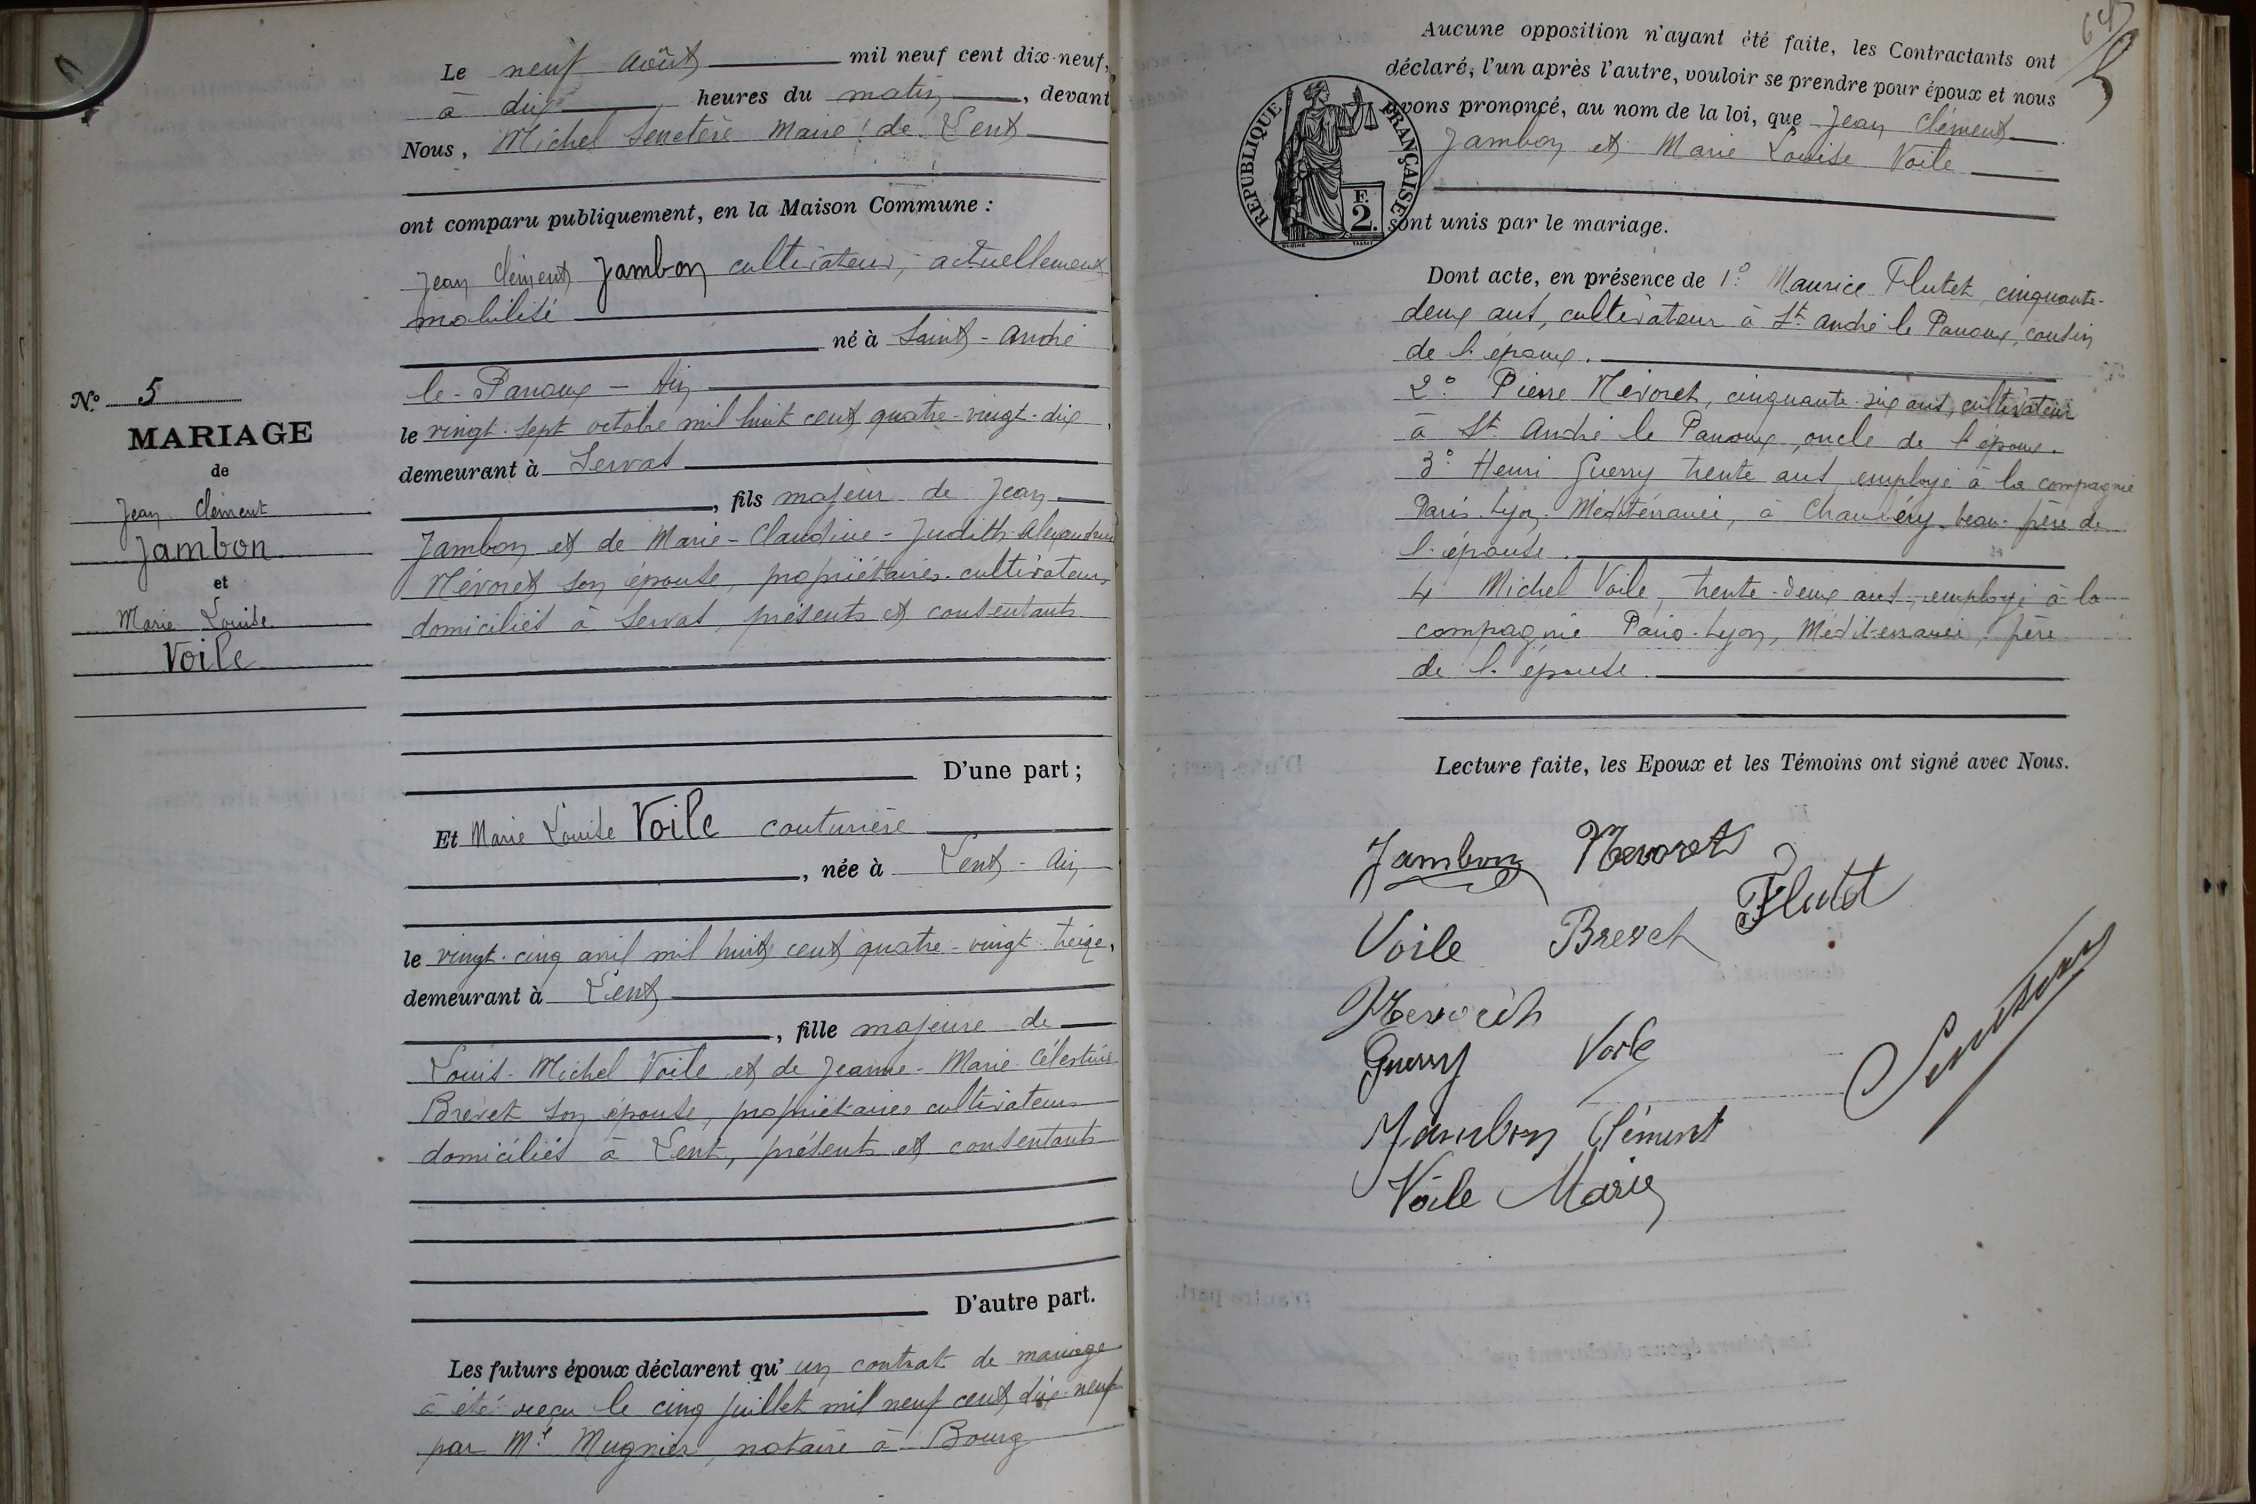 Le neuf août mil neuf cent dix-neuf,
à dix heures du matin, devant
Nous, Michel Senetère Maire de Lent
ont comparu publiquement, en la Maison Commune :
Jean Clément Jambon cultivateur, actuellement
mobilisé
né à Saint-André
le-Panoux - Ain
le vingt-sept octobre mil huit cent quatre-vingt-dix,
demeurant à Servas
, fils majeur de Jean
Jambon et de Marie-Claudine-Judith-Alexandrine
Névoret son épouse, propriétaires-cultivateurs
domiciliés à Servas, présents et consentants
D'une part ;
N.° 5
MARIAGE
de
Jean Clément
Jambon
et
Marie Louise
Voile
Et Marie Louise Voile couturière
, née à Lent - Ain
le vingt-cinq avril mil huit cent quatre-vingt-treize,
demeurant à Lent
, fille majeure de
Louis-Michel Voile et de Jeanne-Marie Célestine
Brevet son épouse, propriétaires cultivateurs
domiciliés à Lent, présents et consentants
D'autre part.
Les futurs époux déclarent qu'un contrat de mariage
a été reçu le cinq juillet mil neuf cent dix-neuf
par Me Mugnier, notaire à Bourg
64
5
Aucune opposition n'ayant été faite, les Contractants ont
déclaré, l'un après l'autre, vouloir se prendre pour époux et nous
avons prononcé, au nom de la loi, que Jean Clément
Jambon et Marie Louise Voile
sont unis par le mariage.
REPUBLIQUE FRANÇAISE
F.
2.
Dont acte, en présence de 1° Maurice Flutet, cinquante-
deux ans, cultivateur à St André le Panoux, cousin
de l'époux.
2° Pierre Névoret, cinquante-six ans, cultivateur
à St André le Panoux, oncle de l'époux.
3° Henri Guerry trente ans, employé à la compagnie
Paris Lyon Méditérranée, à Chambéry, beau-père de
l'épouse.
4 Michel Voile, trente-deux ans, employé à la
compagnie Paris-Lyon, Méditerranée, père
de l'épouse.
Lecture faite, les Epoux et les Témoins ont signé avec Nous.
Jambon Nevoret
Flutet
Voile Brevet
Nevoret
Guerry Voile
Senetère
Jambon Clément
Voile Marie